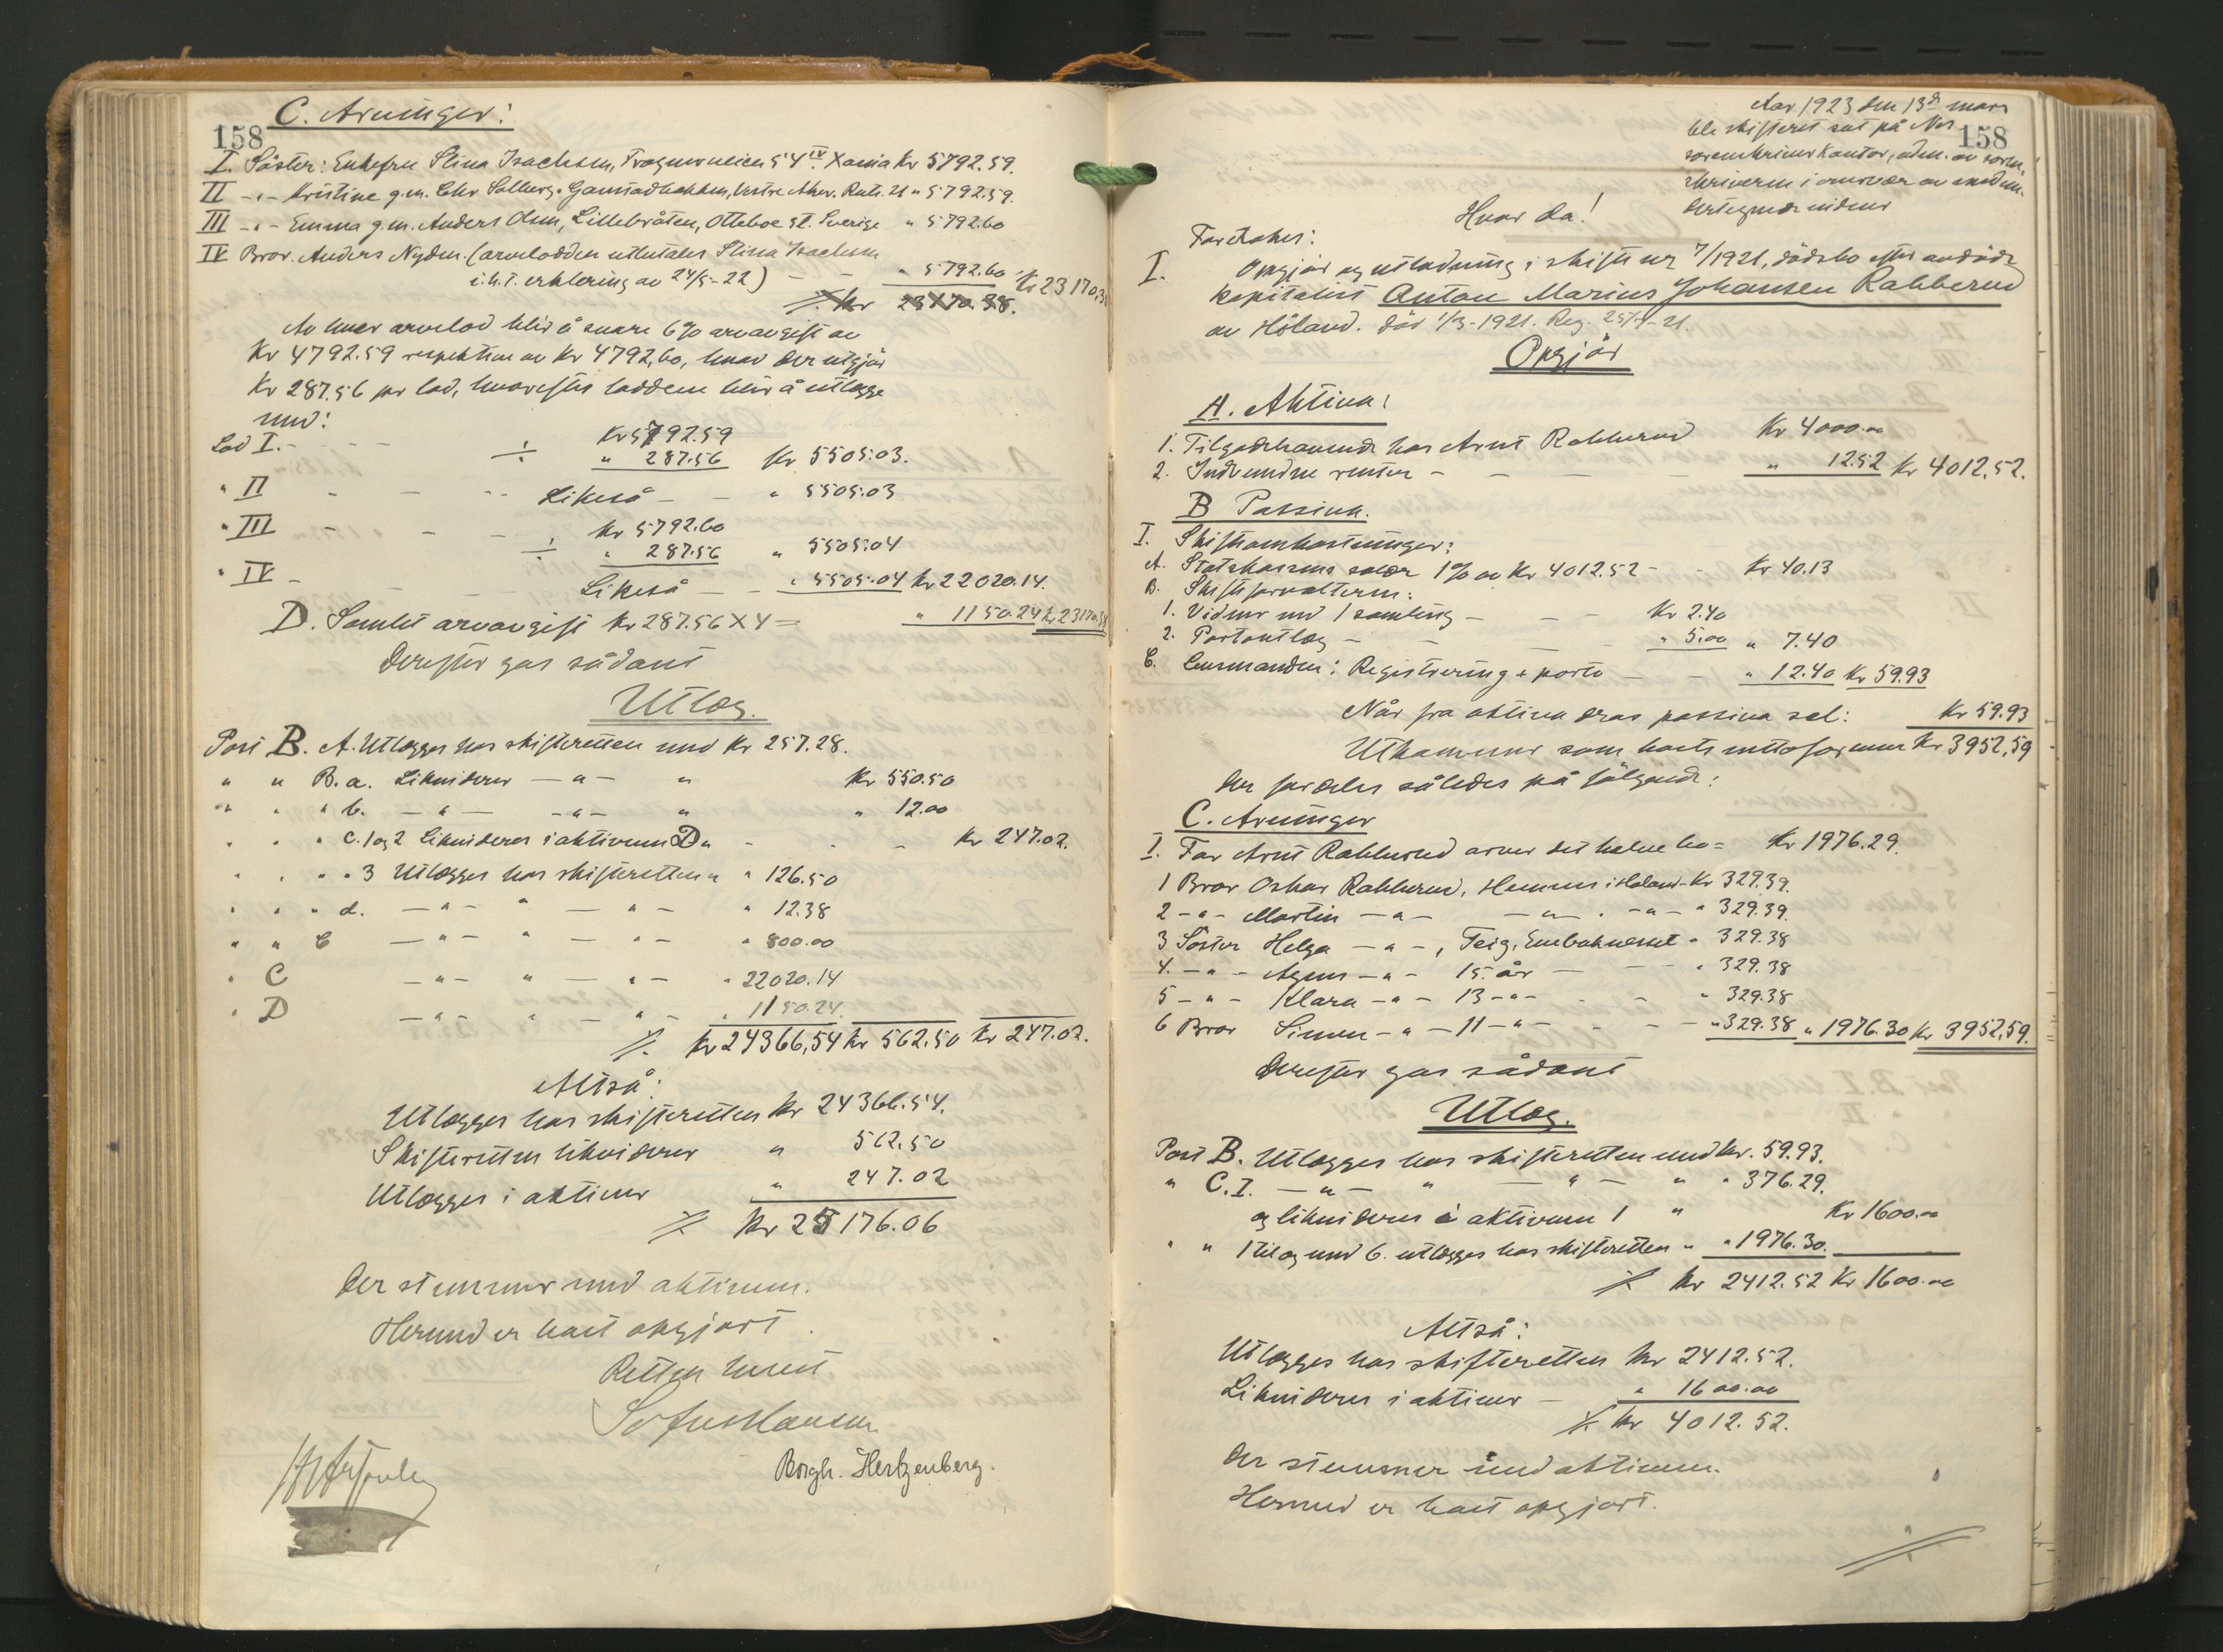 158
C. Arvinger:
I. Søster: Enkefru Stina Isachsen, Trognerveien 54 IV Xania Kr 5792.59.
II -"- Kristine g.m. Chr Solberg, Gaustadbakken, Vestre Aker. Rute 21 " 5792.59.
III -"- Emma g.m. Anders Olsen, Lillebråten, Otteboe st. Sverige " 5792.60
IV Bror. Anders Nydén. (arvelodden utbetales Stina Isachsen
i.h.t. erklæring av 24/5-22) - - " 5792.60 Kr 23170,38
⁒ Kr 23170.38.
Av hver arvelod blir å svare 6% arveavgift av
Kr 4792.59 respektive av Kr 4792,60, hvad der utgjør
Kr 287.56 pr lod, hvorefter loddene blir å utlægge
med:
Lod I. - - - Kr 5792.59
÷ " 287.56 Kr 5505.03.
" II - - - Likeså - - " 5505.03
" III - - - Kr 5792.60
÷ " 287.56 " 5505.04
" IV - - - Likeså - - " 5505.04 Kr 22020.14.
D. Samlet arveavgift Kr 287.56 X 4 = " 1150.24 Kr 23170.38
Derefter gas sådant
Utlæg.
Post B. A. Utlægges hos skifteretten med Kr 257.28.
" " B. a. Likvideres -"- " Kr 550.50
" " " b. -"- -"- " " 12.00
" " " c. 1 og 2 Likvideres i aktivum D " - - - Kr 247.02.
" " " " 3 Utlægges hos skifteretten " " 126.50
" " " d. -"- " -"- " 12.38
" " C -"- " -"- " 800.00
" C -"- " -"- " 22020.14
" D -"- " -"- " 1150.24.
⁒ Kr 24366,54 Kr 562.50 Kr 247.02.
Altså:
Utlægges hos skifteretten Kr 24366.54.
Skifteretten likviderer " 562.50
Utlægges i aktiver " 247.02
⁒ Kr 25176.06
Der stemmer med aktivum.
Hermed er boet opgjort.
Retten hævet
Sofus Hansen
Borgh. Hertzenberg.
158
Aar 1923 den 13de mars
ble skifteret sat på Nes
sorenskriverkontor, adm. av soren-
skriveren i overvær av medun-
dertegnede vidner
Hvor da!
Foretokes:
I. Opgjør og utlodning i skifte nr 7/1921, dødsbo efter avdøde
kapitalist Anton Marius Johansen Rakkerud
av Høland. Død 1/3-1921. Reg. 25/4-21.
Opgjør
A. Aktiva:
1. Tilgodehavende hos Arnt Rakkerud Kr 4000.00
2. Indvundne renter - - - - " 12.52 Kr 4012,52.
B Passiva.
I. Skifteomkostninger:
A. Statskassens salær 1% av Kr 4012.52 - - Kr 40.13
B. Skifteforvalteren:
1. Vidner ved 1 samling - - - Kr 2.40
2. Portoutlæg - - - " 5.00 " 7.40
C. Lensmanden: Registrering + porto - - " 12.40 Kr 59.93
Når fra aktiva dras passiva sål: Kr 59.93
Utkommer som boets nettoformue Kr 3952,59
der fordeles således på følgende:
C. Arvinger
I. Far Arnt Rakkerud arver det halve bo = Kr 1976.29.
1 Bror Oskar Rakkerud, Hemnes i Høland - Kr 329.39.
2 -"- Martin -"- -"- . -"- " 329.39.
3 Søster Helga -"-, Teig, Enebaknesset " 329.38
4. -"- Agnes -"- 15 år - - - " 329.38
5 -"- Klara -"- 13 -"- - - " 329.38
6 Bror Simen -"- 11 -"- - - - " 329.38 " 1976.30 Kr 3952,59.
Derefter gas sådant
Utlæg.
Post B. Utlægges hos skifteretten med Kr. 59.93.
" C. I. -"- " -"- " " 376.29.
og likvideres i aktivum 1 " Kr 1600.00
" " 1 til og med 6. utlægges hos skifteretten " " 1976.30.
⁒ Kr 2412.52 Kr 1600.00
Altså:
Utlægges hos skifteretten Kr 2412.52.
Likvideres i aktiver - " 1600.00
⁒ Kr 4012.52.
Der stemmer med aktivum.
Hermed er boet opgjort.